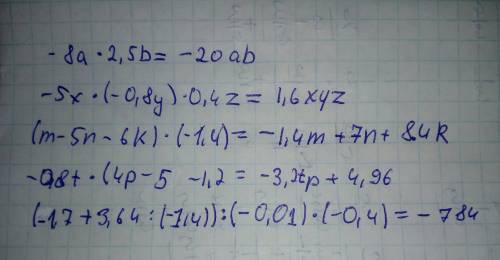 -8a · 2,5b = -20ab
-5x · (-0,8y) · 0,4z = 1,6xyz
(m-5n-6k) · (-1,4) = -1,4m + 7n + 8.4k
-0,8t · (4p-5 -1,2 = -3,2tp + 4,96
(-1,7 + 3,64 : (-1,4)) : (-0,01) · (-0,4) = -784